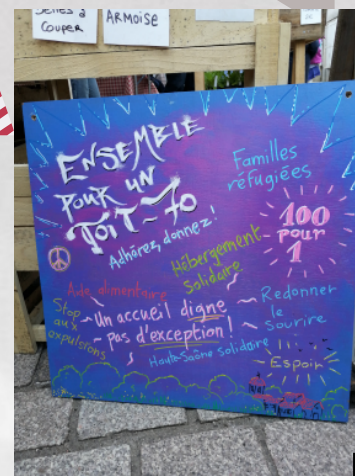 à
Couper
ARMOISE
ENSEMBLE
POUR UN
TOIT-70
Adhérez, donnez!
Familles
réfugiées
100
pour
1
Hébergement
Solidaire
Aide alimentaire
Stop
aux
expulsions
Un accueil digne
pas d'exception!
Redonner
le
Sourire
Haute-Saône solidaire
Espoir